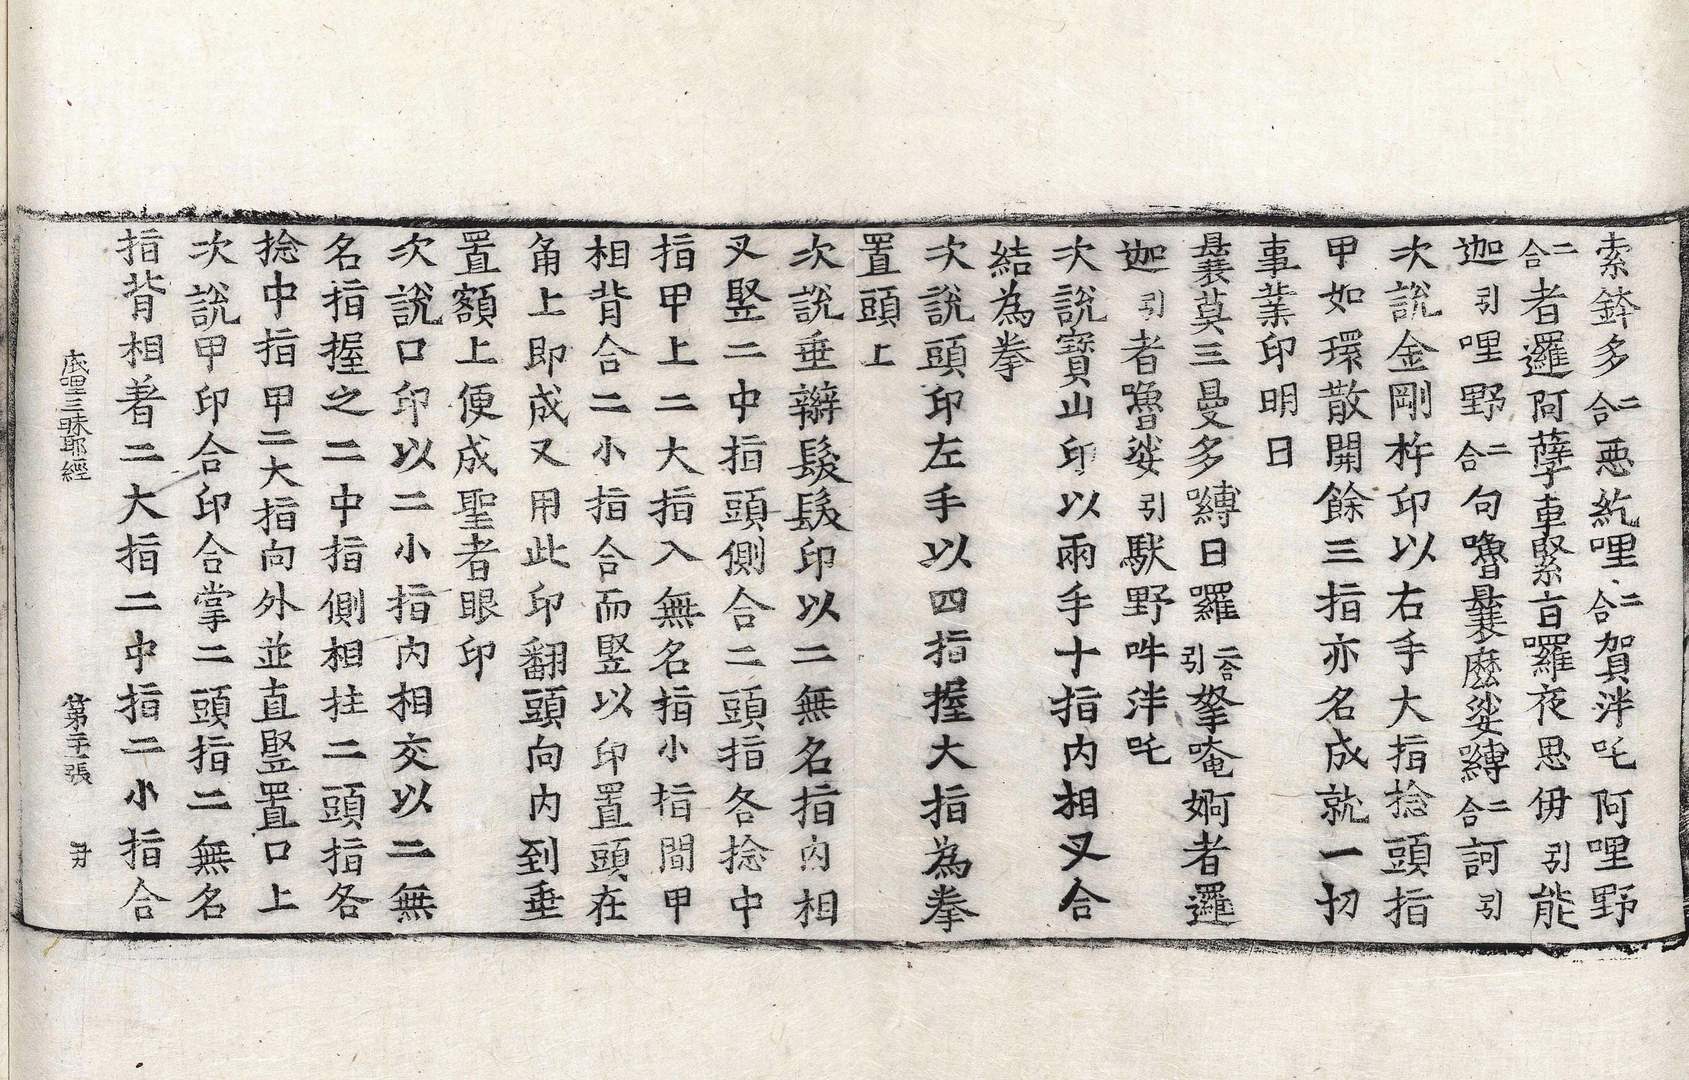 索鉢多二合惡紇哩二合賀泮吒阿哩野
二合者邏阿孽車緊旨囉夜思毋引能
迦引哩野二合句嚕曩麽娑嚩二合訶引
次說金剛杵印以右手大指捻頭指
甲如環散開餘三指亦名成就一切
事業印明曰
曩莫三曼多嚩日囉二合引拏唵婀者邏
迦引者嚕娑引馱野吽泮吒
次說寶山印以兩手十指內相叉合
結為拳
次說頭印左手以四指握大指為拳
置頭上
次說垂辮髮髮印以二無名指內相
叉豎二中指頭側合二頭指各捻中
指甲上二大指入無名指小指間甲
相背合二小指合而豎以印置頭在
角上即成又用此印翻頭向內到垂
置額上便成聖者眼印
次說口印以二小指內相交以二無
名指握之二中指側相拄二頭指各
捻中指甲二大指向外並直豎置口上
次說甲印合印合掌二頭指二無名
指背相著二大指二中指二小指合
底哩三昧耶經 第 張